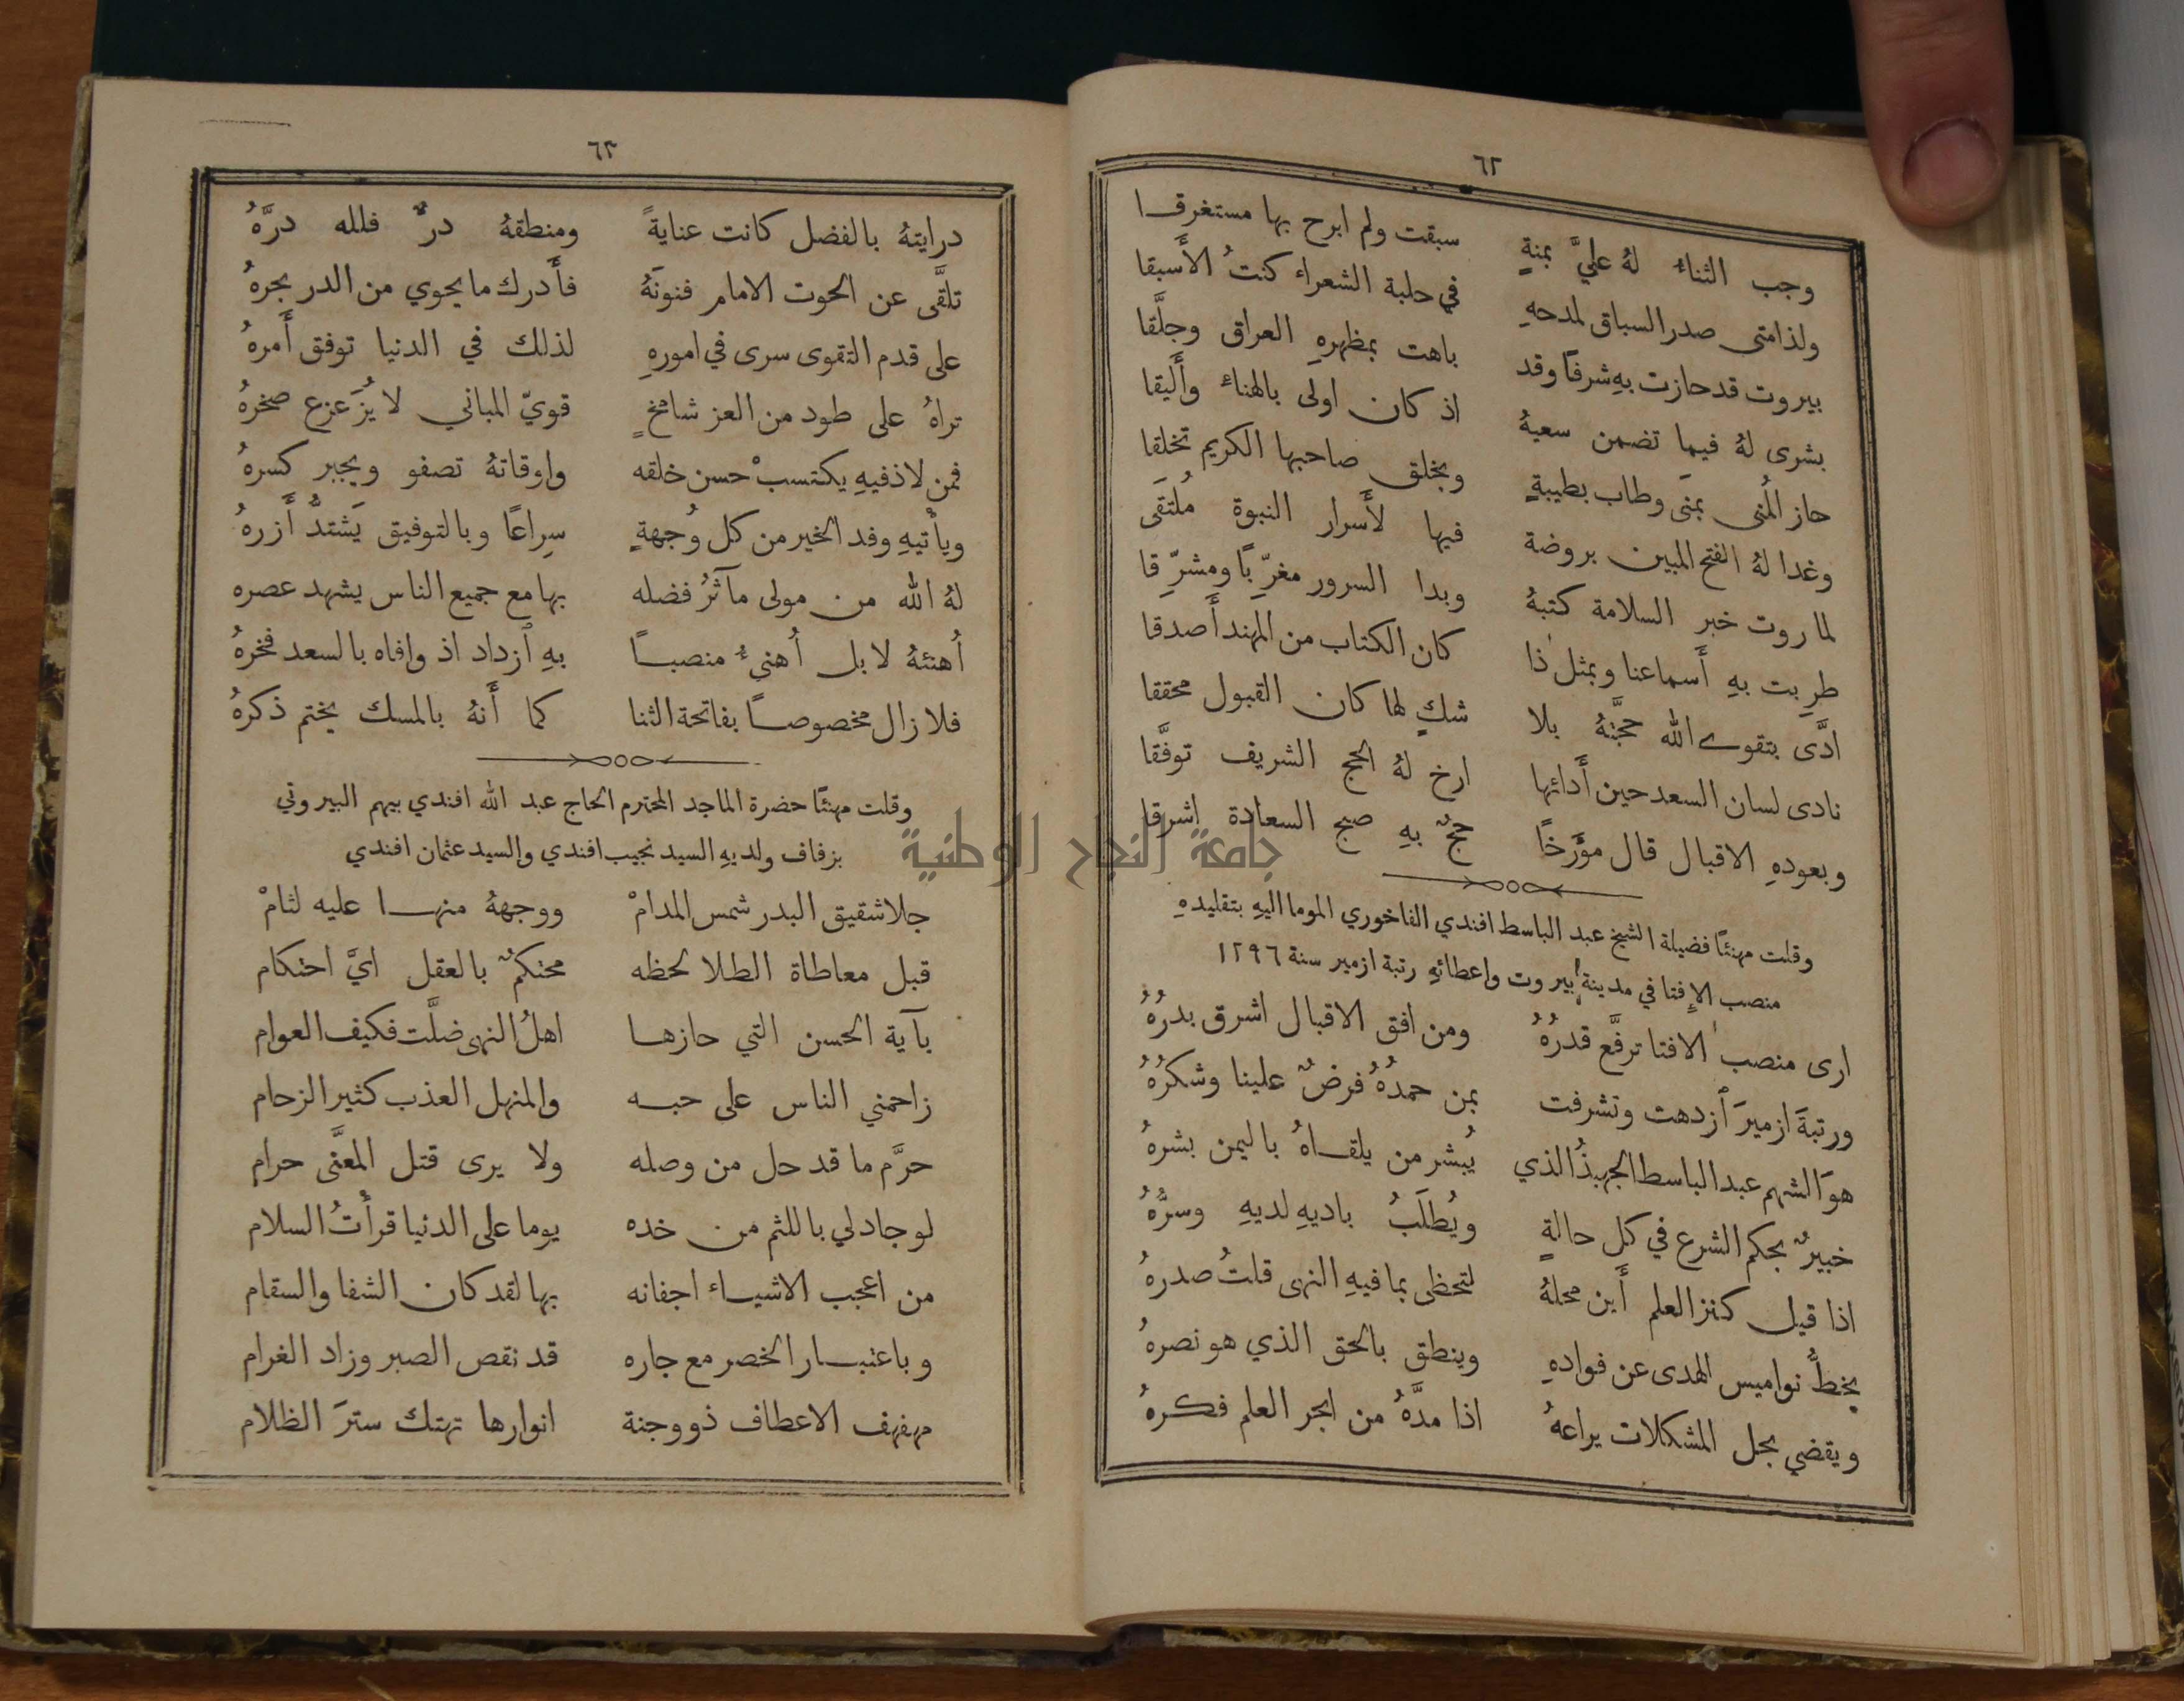 ٦٢
وجب الثناء لهُ عليَّ بمنةٍ سبقت ولم ابرح بها مستغرقا
ولذا متى صدر السباق لمدحهِ في حلبة الشعراء كنتُ الأَسبقا
بيروت قد حازت بهِ شرفًا وقد باهت بمظهرهِ العراق وجلَّقا
بشرى لهُ فيما تضمن سعيهُ اذ كان اولى بالهناء وأَليقا
حاز المُنى بمنَى وطاب بطيبةٍ وبخلق صاحبها الكريم تخلقا
وغدا لهُ الفتح المبين بروضة فيها لأَسرار النبوة مُلتقَى
لما روت خبر السلامة كتبهُ وبدا السرور مغرّبًا ومشرّقا
طربت بهِ أَسماعنا وبمثل ذا كان الكتاب من المهند أَصدقا
ادَّى بتقوى الله حجَّتهُ بلا شكٍ لها كان القبول محققا
نادى لسان السعد حين أَدائها ارخ لهُ الحج الشريف توفَّقا
وبعودهِ الاقبال قال مؤَرخًا حجٌ بهِ صبح السعادة اشرقا
وقلت مهنئًا فضيلة الشيخ عبد الباسط افندي الفاخوري الموما اليهِ بتقليدهِ
منصب الإِفتا في مدينة بيروت واعطائهِ رتبة ازمير سنة ١٢٩٦
ارى منصب الافتا ترفَّع قدرُهُ ومن افق الاقبال اشرق بدرُهُ
ورتبةَ ازميرَ ٱزدهت وتشرفت بمن حمدُهُ فرضٌ علينا وشكرُهُ
هوَ الشهم عبد الباسط الجهبذُ الذي يُبشر من يلقاهُ باليمن بشرهُ
خبيرٌ بحكم الشرع في كل حالةٍ ويُطلَبُ باديهِ لديهِ وسرُّهُ
اذا قيل كنز العلم أَين محلهُ لتحظى بما فيهِ النهى قلتُ صدرهُ
يخطُّ نواميس الهدى عن فوادهِ وينطق بالحق الذي هو نصرهُ
ويقضي بحل المشكلات يراعهُ اذا مدَّهُ من ابحر العلم فكرهُ
٦٣
درايتهُ بالفضل كانت عنايةً ومنطقهُ درٌّ فلله درَّهُ
تلقَّى عن الحوت الامام فنونَهُ فأَدرك ما يحوي من الدر بحرهُ
على قدم التقوى سرى في امورهِ لذلك في الدنيا توفق أَمرهُ
تراهُ على طود من العز شامخٍ قويّ المباني لا يُزَعزع صخرهُ
فمن لاذ فيهِ يكتسبْ حسن خلقه واوقاتهُ تصفو ويجبر كسرهُ
ويأْتيهِ وفد الخير من كل وُجهةٍ سِراعًا وبالتوفيق يَشتدُّ أَزرهُ
لهُ الله من مولى مآثرُ فضله بها مع جميع الناس يشهد عصره
أُهنئهُ لا بل أُهنيُّ منصبًا بهِ ٱزداد اذ وافاه بالسعد فخرهُ
فلا زال مخصوصًا بفاتحة الثنا كما أَنهُ بالمسك يختم ذكرهُ
وقلت مهنئًا حضرة الماجد المحترم الحاج عبد الله افندي بيهم البيروتي
بزفاف ولديهِ السيد نجيب افندي والسيد عثمان افندي
جلا شقيق البدر شمس المدامْ ووجههُ منها عليه لثامْ
قبل معاطاة الطلا لحظه محتكمٌ بالعقل ايَّ احتكام
بآية الحسن التي حازها اهلُ النهى ضلَّت فكيف العوام
زاحمني الناس على حبه والمنهل العذب كثير الزحام
حرَّم ما قد حل من وصله ولا يرى قتل المعنَّى حرام
لو جاد لي باللثم من خده يوما على الدنيا قرأْتُ السلام
من اعجب الاشياء اجفانه بها لقد كان الشفا والسقام
وباعتبار الخصر مع جاره قد نقص الصبر وزاد الغرام
مهفهف الاعطاف ذو وجنة انوارها تهتك سترَ الظلام
جامعة النجاح الوطنية